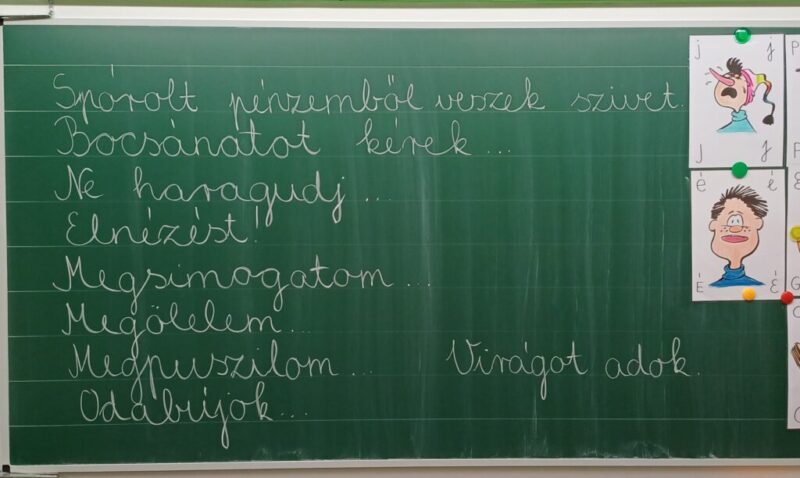 Spórolt pénzemből veszek szivet.
Bocsánatot kérek ...
Ne haragudj ...
Elnézést!
Megsimogatom ...
Megölelem ...
Megpuszilom ... Virágot adok.
Odabújok ...
j j
J J
é é
É É